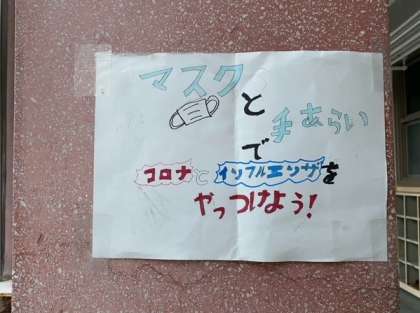 マスク
と
手あらい
で
コロナとインフルエンザを
やっつけよう!